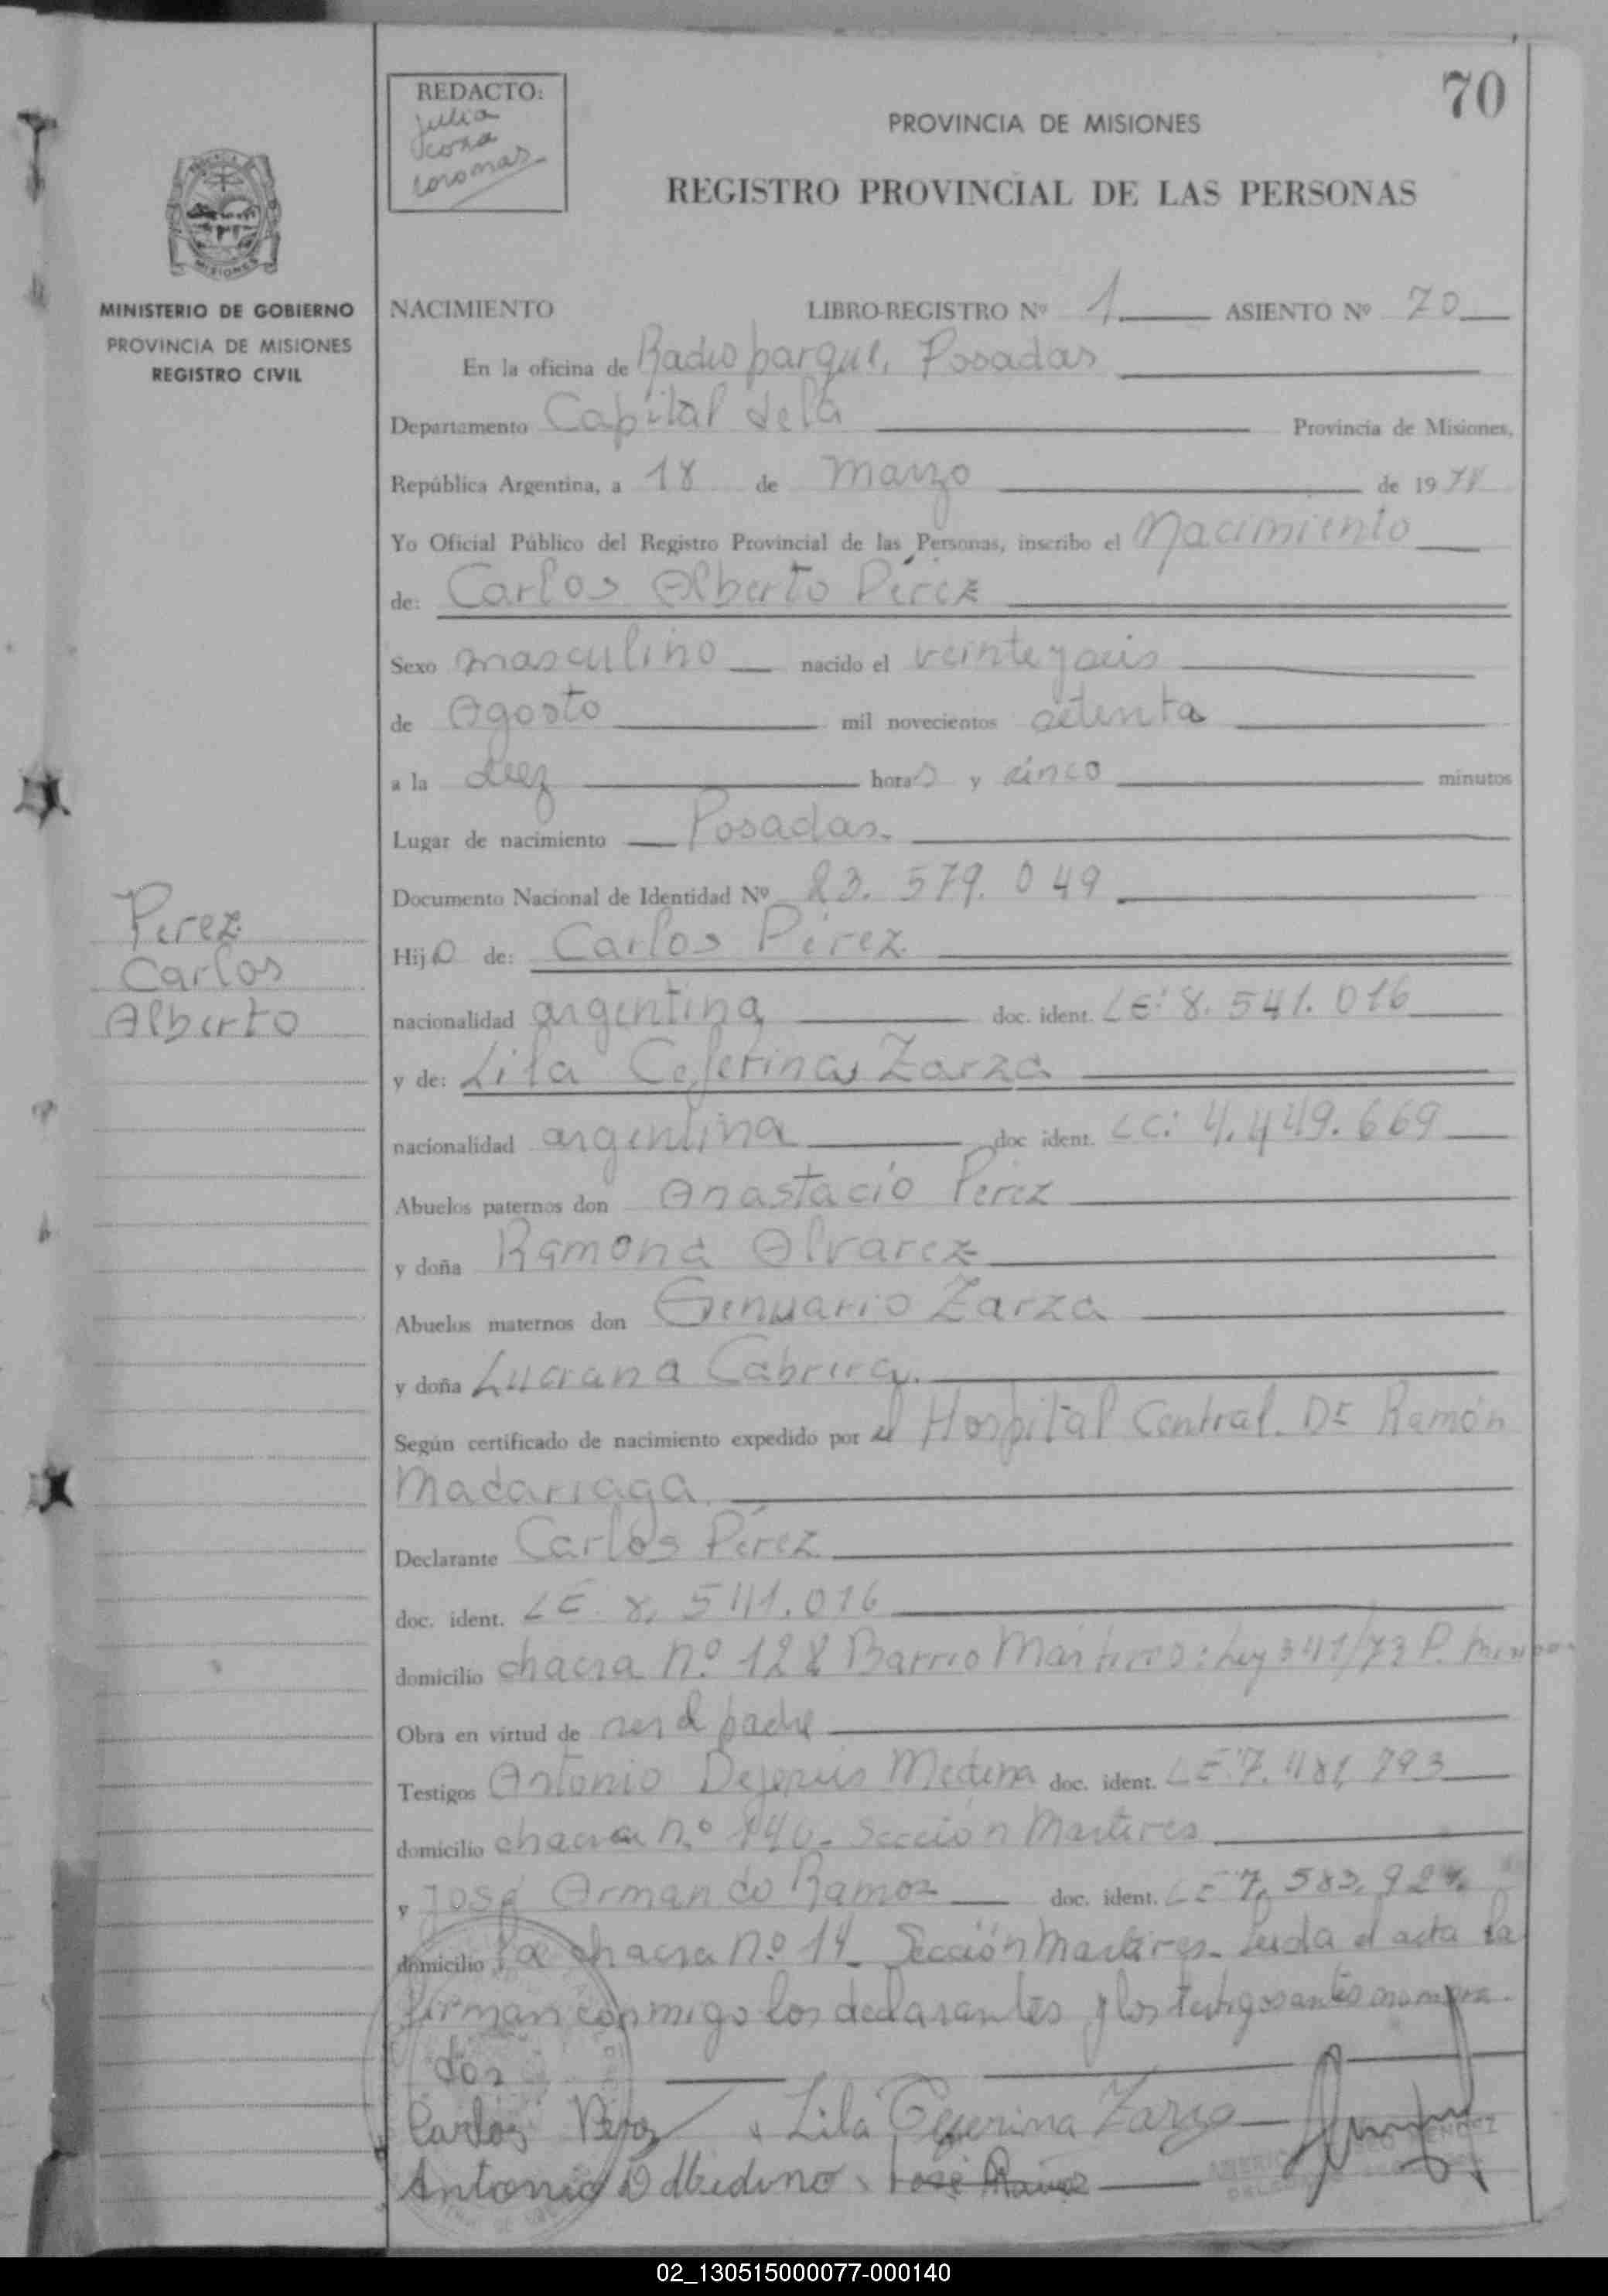 70
REDACTO:
Julia
Rosa
Coromas
PROVINCIA DE MISIONES
REGISTRO PROVINCIAL DE LAS PERSONAS
MISIONES
MINISTERIO DE GOBIERNO
PROVINCIA DE MISIONES
REGISTRO CIVIL
NACIMIENTO LIBRO-REGISTRO Nº 1 ASIENTO Nº 70
En la oficina de Radio parque, Posadas
Departamento Capital de la Provincia de Misiones,
República Argentina, a 18 de Marzo de 1974
Yo Oficial Público del Registro Provincial de las Personas, inscribo el Nacimiento
de: Carlos Alberto Pérez
Sexo masculino nacido el veinte y seis
de Agosto mil novecientos setenta
a la diez horas y cinco minutos
Lugar de nacimiento Posadas.
Documento Nacional de Identidad Nº 23. 579. 049
Perez
Carlos
Alberto
Hijo de: Carlos Pérez
nacionalidad argentina doc. ident. LE: 8. 541. 016
y de: Lila Ceferina Zarza
nacionalidad argentina doc ident. LC: 4.449.669
Abuelos paternos don Anastacio Pérez
y doña Ramona Alvarez
Abuelos maternos don Genuario Zarza
y doña Luciana Cabrera.
Según certificado de nacimiento expedido por el Hospital Central. Dr Ramón
Madariaga.
Declarante Carlos Pérez
doc. ident. LE. 8, 541.016
domicilio chacra n.º 128 Barrio Mártires: Ley 341/73 P.
Obra en virtud de ser el padre
Testigos Antonio Dejesús Medina doc. ident. LE: 7. 481, 793
domicilio chacra n.º 140. Sección Martires
y José Armando Ramos doc. ident. LE 7, 583, 924.
domicilio la chacra n.º 14. Sección Martires. Leida el acta la
firman conmigo los declarantes y los testigos antes nombra-
dos
Carlos Perez Lila Ceferina Zarza
Antonio D Medina José Ramos
02_130515000077-000140